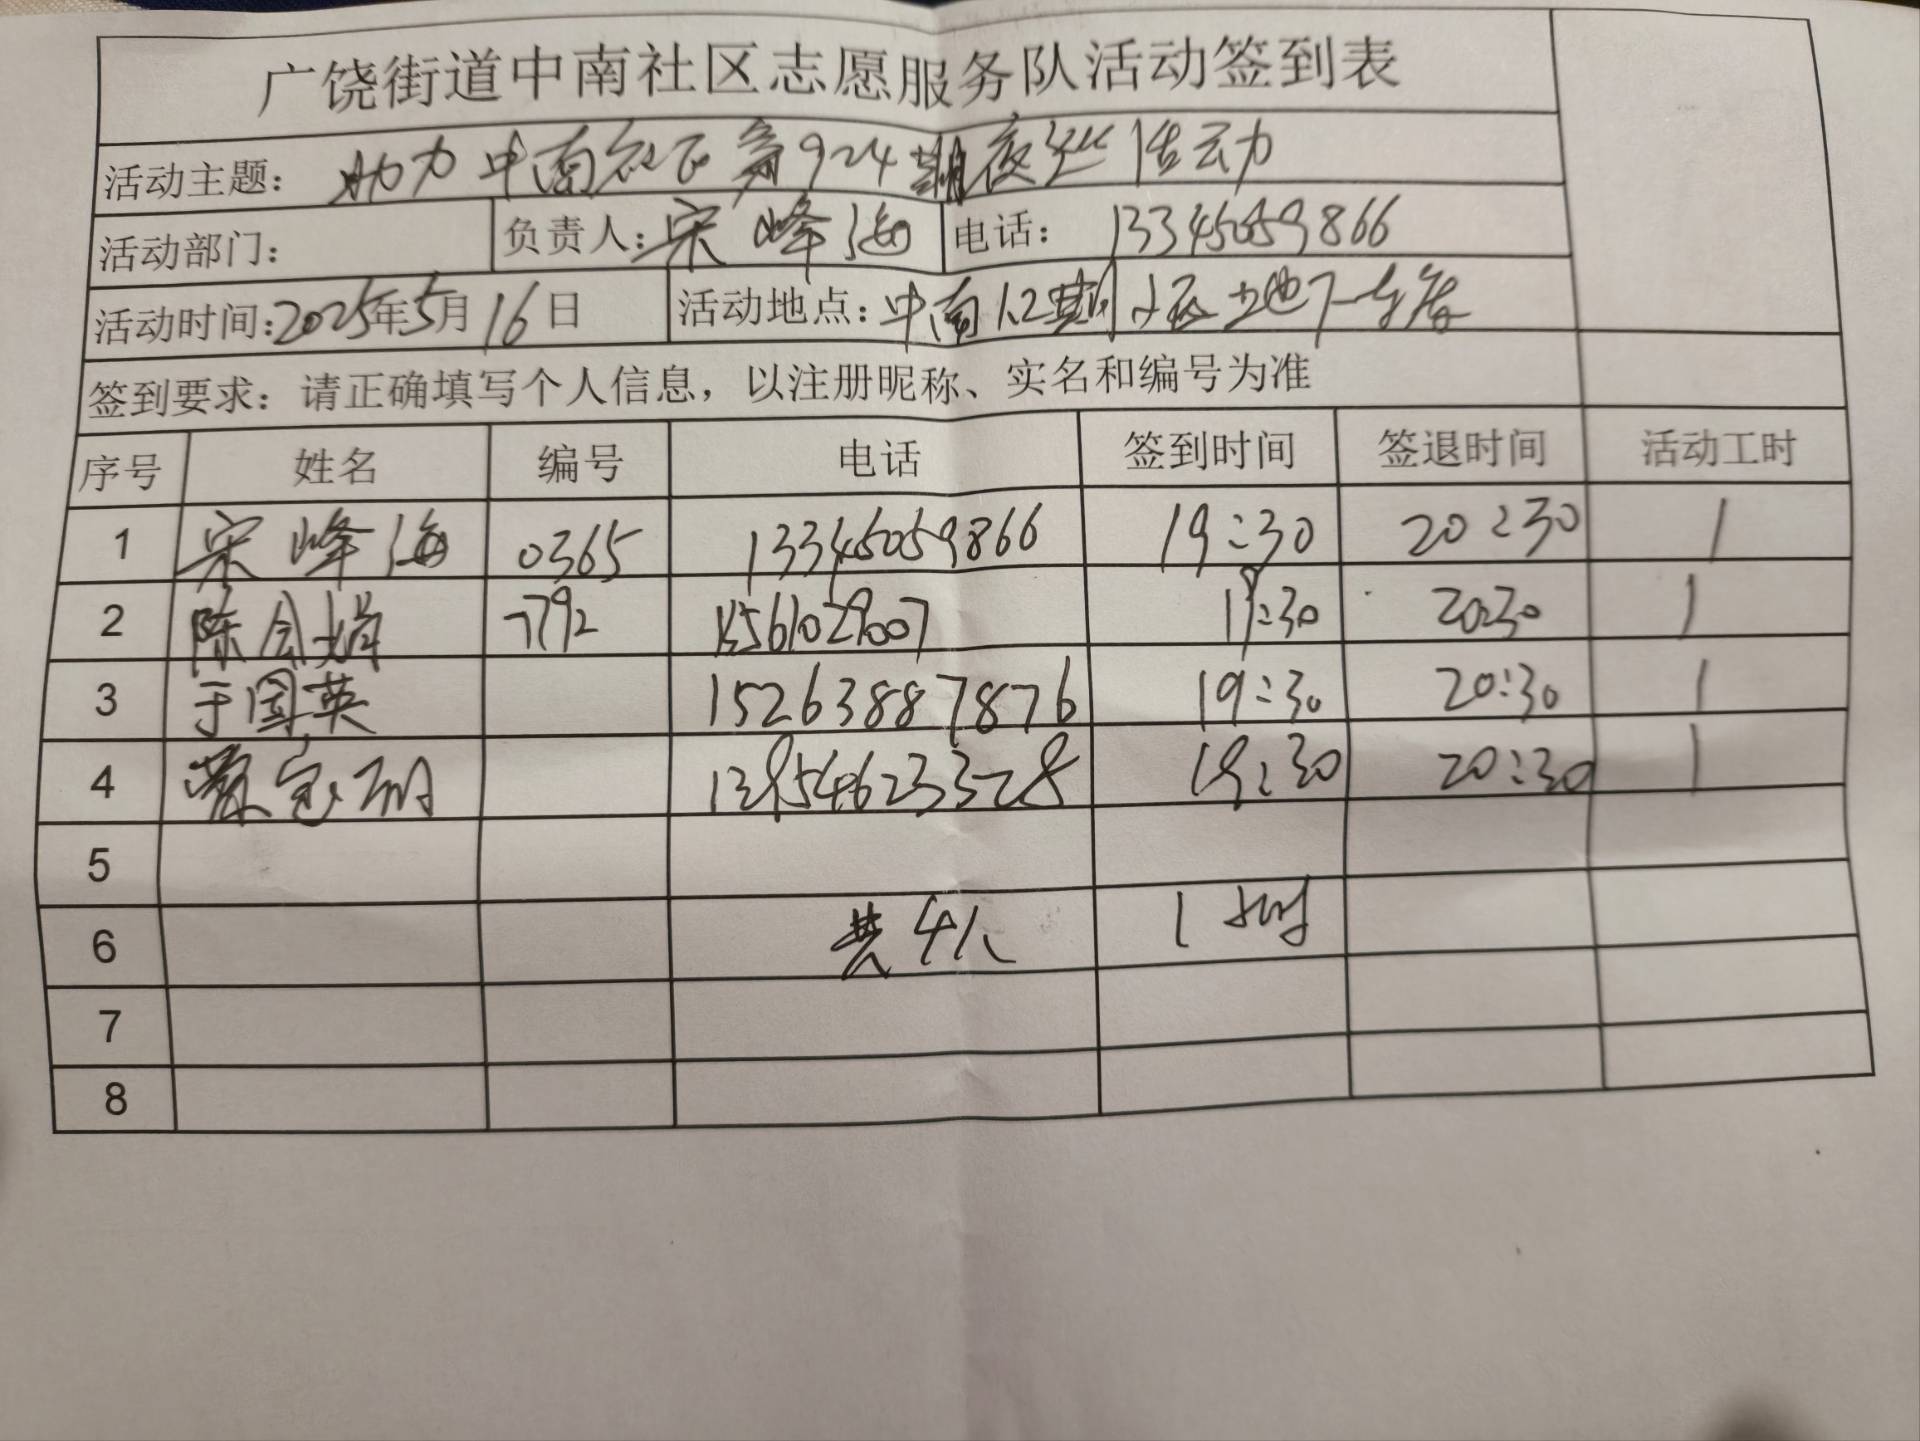 广饶街道中南社区志愿服务队活动签到表
活动主题： 助力中南社区第924期夜巡活动
活动部门： 负责人：宋峰海 电话： 13345059866
活动时间：2025年5月16日 活动地点：中南1.2期小区地下车库
签到要求：请正确填写个人信息，以注册昵称、实名和编号为准
序号 姓名 编号 电话 签到时间 签退时间 活动工时
1 宋峰海 0365 13345059866 19:30 20:30 1
2 陈会娟 7792 19:30 20:30 1
3 于国英 15263887876 19:30 20:30 1
4 19:30 20:30 1
5
6 共4人 1小时
7
8